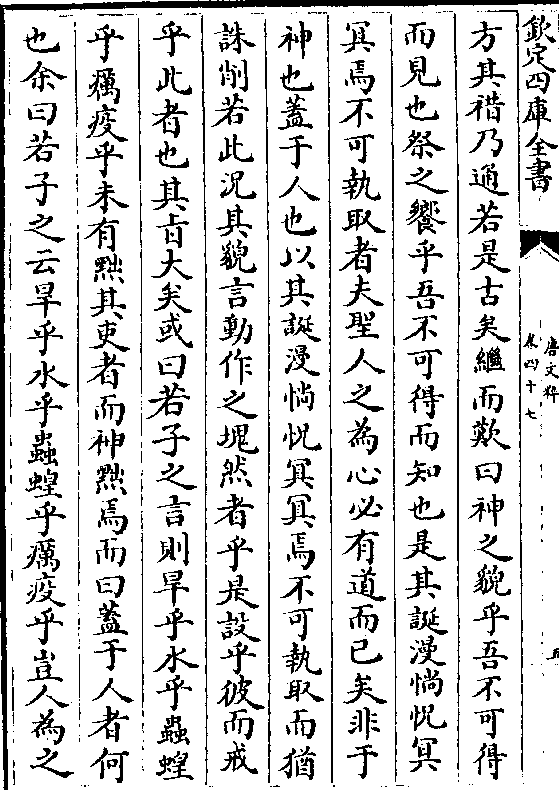 欽定四庫全書
唐文粹
卷四十七
五
方其稽乃通若是古矣繼而歎曰神之貌乎吾不可得
而見也祭之饗乎吾不可得而知也是其誕漫惝怳冥
冥焉不可執取者夫聖人之為心必有道而已矣非于
神也蓋于人也以其誕漫惝怳冥冥焉不可執取而猶
誅削若此況其貌言動作之塊然者乎是設乎彼而戒
乎此者也其㫖大矣或曰若子之言則旱乎水乎蟲蝗
乎癘疫乎未有黜其吏者而神黜焉而曰蓋于人者何
也余曰若子之云旱乎水乎蟲蝗乎癘疫乎豈人為之